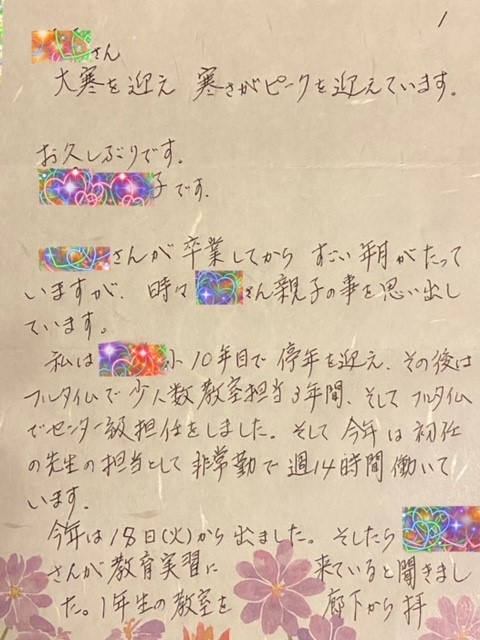 1
さん
大寒を迎え 寒さがピークを迎えています。
お久しぶりです。
子です.
さんが卒業してから すごい年月がたって
いますが、時々 さん親子の事を思い出し
ています。
私は 小10年目で停年を迎え、その後は
フルタイムで少人数教室担当3年間、そしてフルタイム
でセンター級担任をしました。そして今年は初任
の先生の担当として非常勤で週14時間働いて
います。
今年は18日(火)から出ました。そしたら
さんが教育実習に 来ていると聞きまし
た。1年生の教室を 廊下から拝